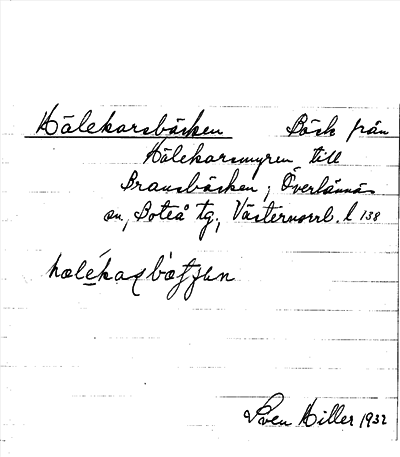 Hålekarsbäcken Bäck från
Hålekarsmyren till
Bransbäcken, Överlännäs
sn, Boteå tg, Västernorrl. l 138
Sven Hiller 1932